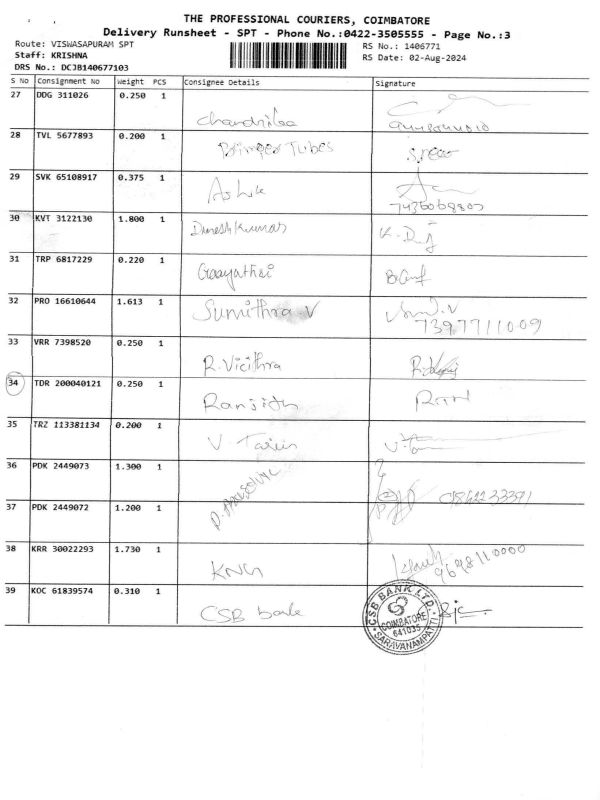 THE PROFESSIONAL COURIERS, COIMBATORE
Delivery Runsheet - SPT - Phone No.:0422-3505555 - Page No.:3
Route: VISWASAPURAM SPT
Staff: KRISHNA
DRS No.: DCJB140677103
RS No.: 1406771
RS Date: 02-Aug-2024
S No Consignment No Weight PCS Consignee Details Signature
27 DDG 311026 0.250 1
28 TVL 5677893 0.200 1
Tubes
29 SVK 65108917 0.375 1
30 KVT 3122130 1.800 1
DineshKumar
31 TRP 6817229 0.220 1
Gaayathri
32 PRO 16610644 1.613 1
Sumithra V
7397711009
33 VRR 7398520 0.250 1
R.Vicithra
34 TDR 200040121 0.250 1
Ranjith
35 TRZ 113381134 0.200 1
36 PDK 2449073 1.300 1
37 PDK 2449072 1.200 1
38 KRR 30022293 1.730 1
39 KOC 61839574 0.310 1
CSB Bank
CSB BANK LTD.
COIMBATORE
641035
SARAVANAMPATTI